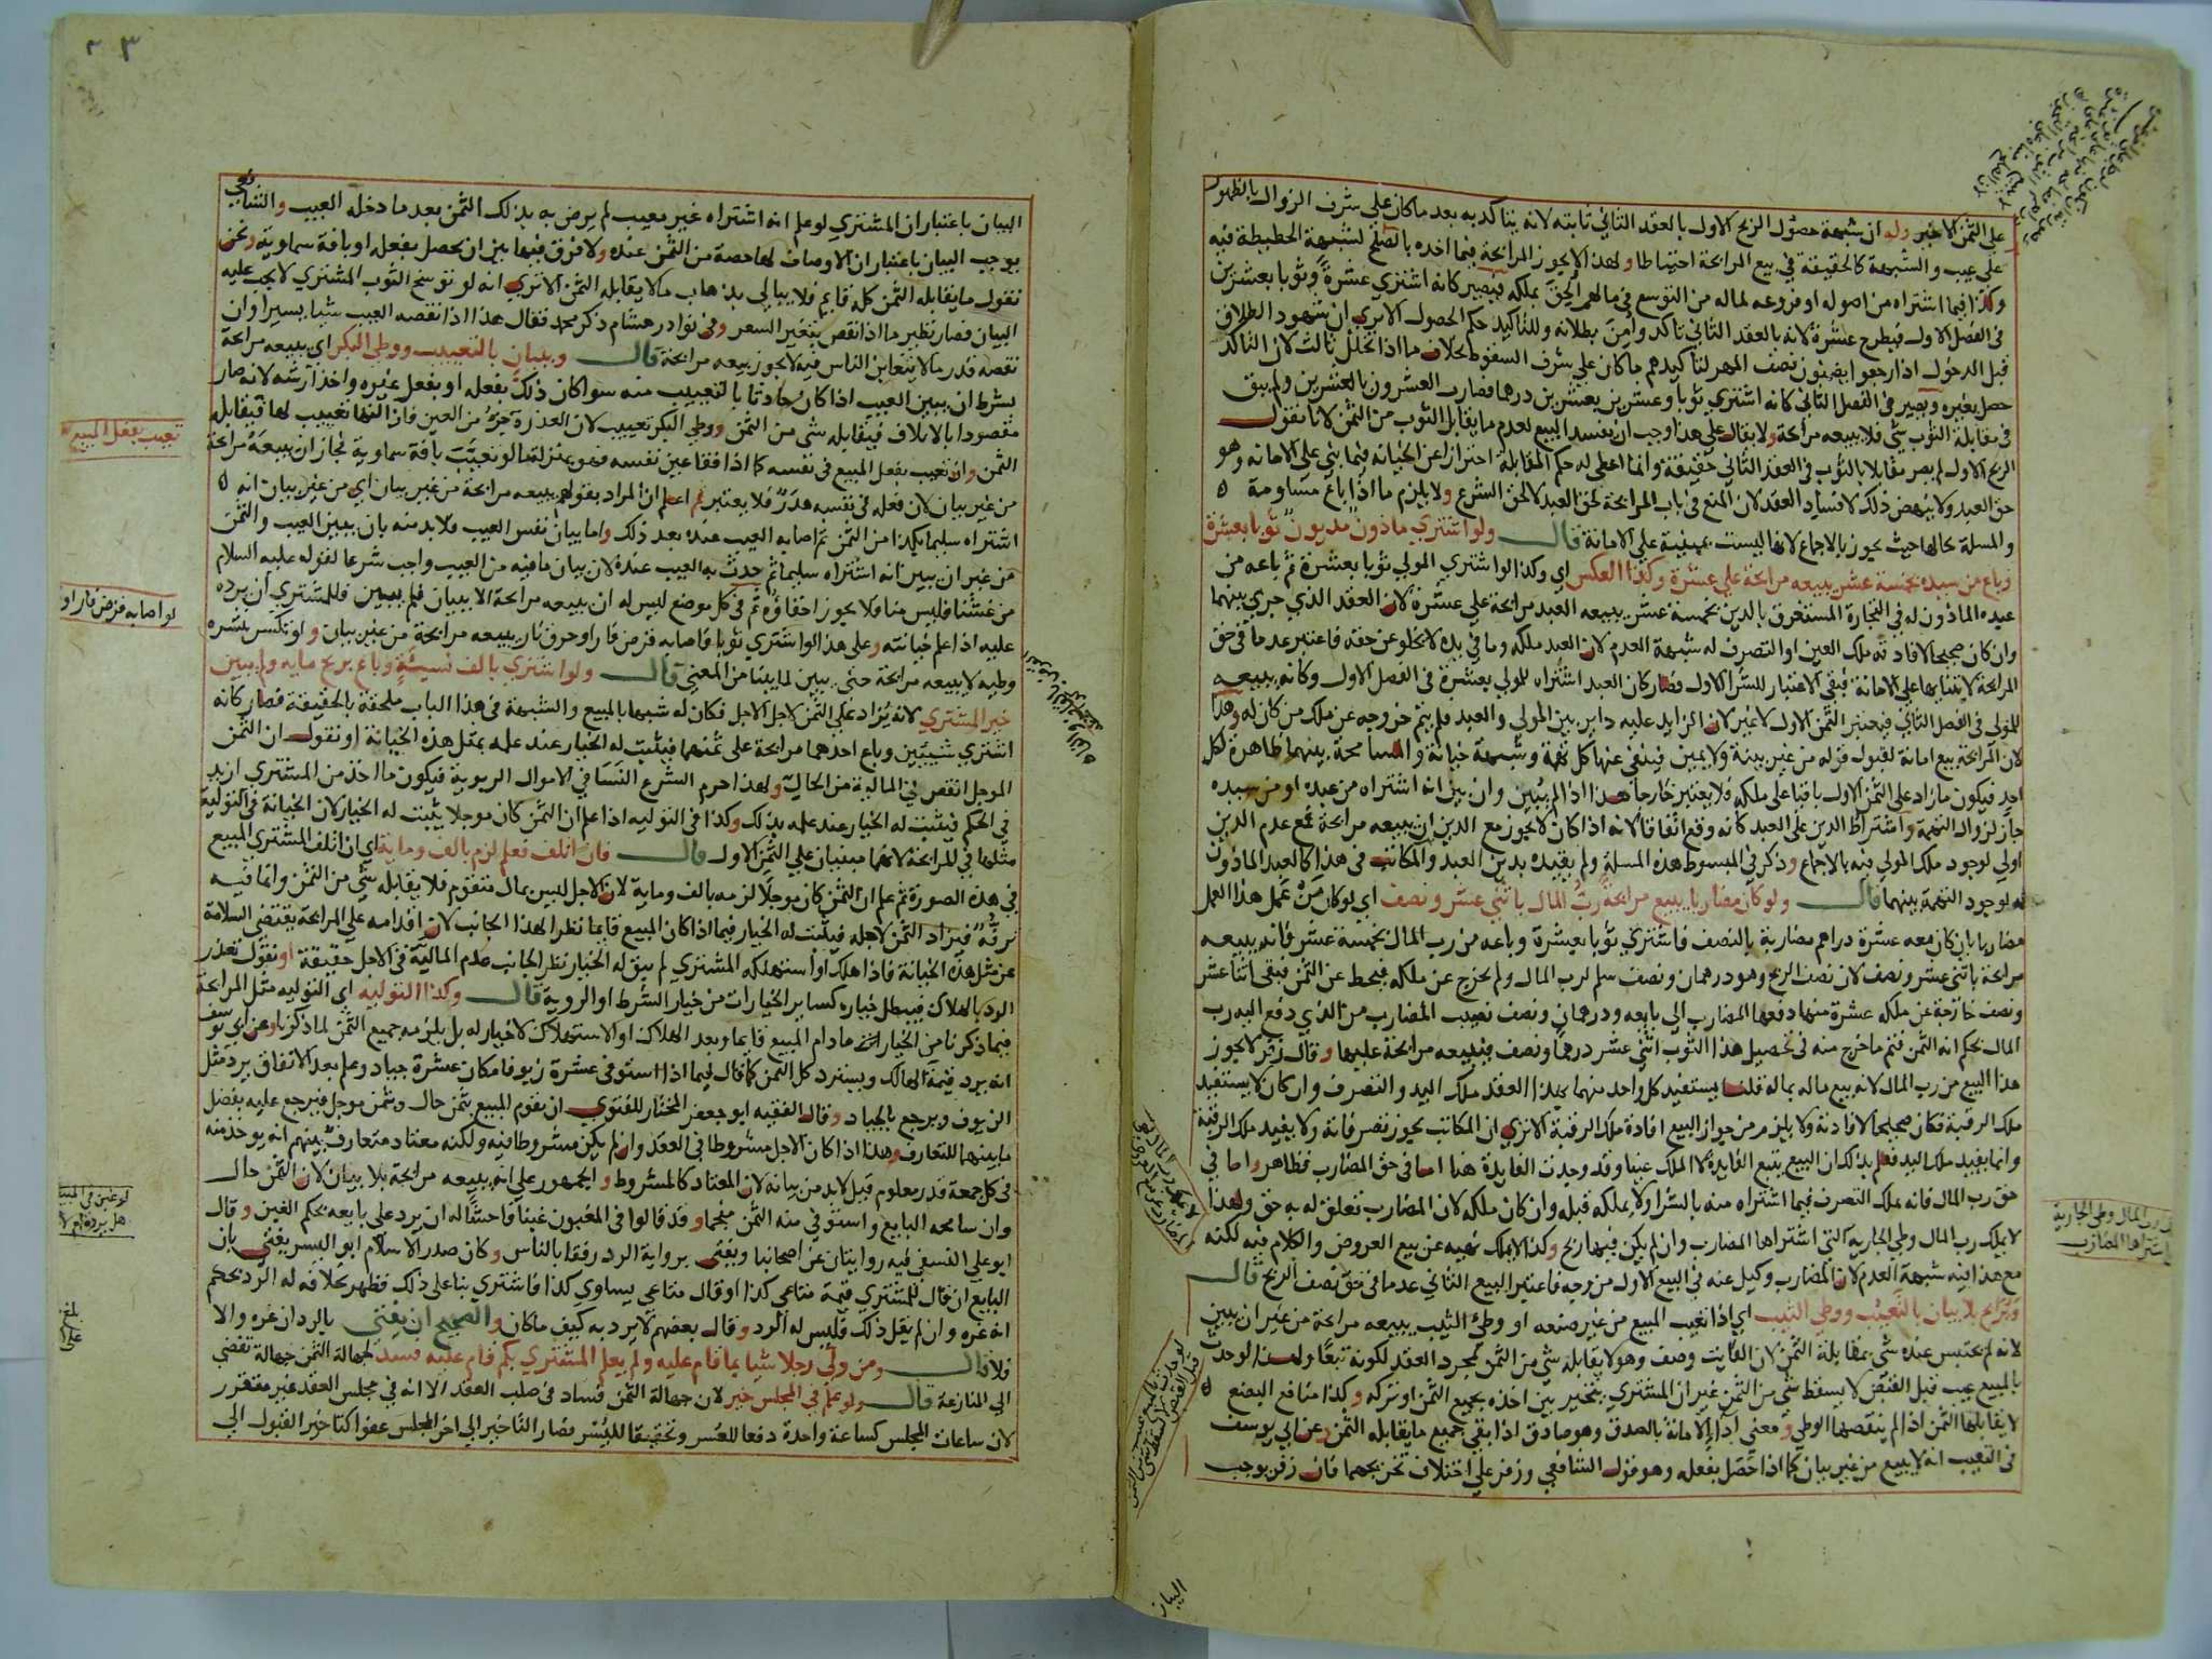 علي الثمن الاخير وله ان شبهة حصول الربح الاول بالعقد الثاني ثابته لانه يتاكد به بعد ما كان علي شرف الزوال بالظهور
علي عيب والشبهة كالحقيقة في بيع المرابحة احتياطا ولهذا لا يجوز المرابحة فيما اخذه بالصلح لشبهة الحطيطة فيه
وكذا فيما اشتراه من اصوله او فروعه لماله من التوسع في مالهم الحق بملكه فيصير كانه اشتري عشرة وثوبا بعشرين
في الفصل الاول فيطرح عشرة لانه بالعقد الثاني تاكد وامن بطلانه وللتاكيد حكم الحصول الا تري ان شهود الطلاق
قبل الدخول اذا رجعوا يضمنون نصف المهر لتاكيدهم ما كان علي شرف السقوط بخلاف ما اذا تخلل ثالث لان التاكد
حصل بغيره ويصير في الفصل الثاني كانه اشتري ثوبا وعشرين بعشرين درهما فصارت العشرون بالعشرين ولم يبق
في مقابلة الثوب شي فلا يبيعه مرابحة ولا يقال علي هذا وجب ان يفسد البيع لعدم ما يقابل الثوب من الثمن لانا نقول
الربح الاول لم يصر مقابلا بالثوب في العقد الثاني حقيقة وانما اعطي له حكم المقابلة احترازا عن الخيانة فيما بني علي الامانة وهو
حق العبد ولا ينهض ذلك لافساد العقد لان المنع في باب المرابحة لحق العبد لا لحق الشرع ولا يلزم ما اذا باع مساومة
والمسلة بحالها حيث يجوز بالاجماع لانها ليست بمبنية علي الامانة قال ولو اشتري ماذون مديون ثوبا بعشرة
وباع من سيده بخمسة عشر يبيعه مرابحة علي عشرة وكذا العكس اي وكذا لو اشتري المولي ثوبا بعشرة ثم باعه من
عبده الماذون له في التجارة المستغرق بالدين بخمسة عشر يبيعه العبد مرابحة علي عشرة لان العقد الذي جري بينهما
وان كان صحيحا لافادته ملك العين او التصرف له شبهة العدم لان العبد ملكه وما في يده لا يخلو عن حقه فاعتبر عدما في حق
المرابحة لابتنايها علي الامانة فبقي الاعتبار للشرا الاول فصار كان العبد اشتراه للمولي بعشرة في الفصل الاول وكانه يبيعه
للمولي في الفصل الثاني فيعتبر الثمن الاول لا غير لان الزايد عليه داير بين المولي والعبد فلم يتم خروجه عن ملك من كان له وهذا
لان المرابحة بيع امانة لقبول قوله من غير بينة ولا يمين فينفي عنها كل تهمة وشبهة خيانة والمسامحة بينهما ظاهرة لكل
احد فيكون ما زاد علي الثمن الاول باقيا علي ملكه فلا يعتبر خارجا هذا اذا لم يبين وان بين انه اشتراه من عبده او من سيده
جاز لزوال التهمة واشتراط الدين علي العبد كانه وقع اتفاقا لانه اذا كان لا يجوز مع الدين ان يبيعه مرابحة فمع عدم الدين
اولي لوجود ملك المولي فيه بالاجماع وذكر في المبسوط هذه المسلة ولم يقيده بدين العبد والمكاتب في هذا كالعبد الماذون
له لوجود التهمة بينهما قال ولو كان مضاربا يبيع مرابحة رب المال باثني عشر ونصف اي لو كان من عمل هذا العمل
مضاربا بان كان معه عشرة دراهم مضاربة بالنصف فاشتري ثوبا بعشرة وباعه من رب المال بخمسة عشر فانه يبيعه
مرابحة باثني عشر ونصف لان نصف الربح وهو درهمان ونصف سلم لرب المال ولم يخرج عن ملكه فيحط عن الثمن فبقي اثنا عشر
ونصف خارجة عن ملكه عشرة منها دفعها المضارب الي بايعه ودرهمان ونصف نصيب المضارب من الذي دفع اليه رب
المال بحكم انه الثمن فتم ما خرج منه في تحصيل هذا الثوب اثني عشر درهما ونصف فيبيعه مرابحة عليها وقال زفر لا يجوز
هذا البيع من رب المال لانه بيع ماله بماله قلنا يستفيد كل واحد منهما بهذا العقد ملك اليد والتصرف وان كان لا يستفيد
ملك الرقبة فكان صحيحا لافادته ولا يلزم من جواز البيع افادة ملك الرقبة الا تري ان المكاتب يجوز تصرفاته ولا يفيد ملك الرقبة
وانما يفيد ملك اليد فعلم بذلك ان البيع يتبع الفايدة لا الملك عينا وقد وجدت الفايدة هنا اما في حق المضارب فظاهر واما في
حق رب المال فانه ملك التصرف فيما اشتراه منه بالشرا ولا يملكه قبله وان كان ملكه لان المضارب تعلق له به حق ولهذا
لا يملك رب المال وطي الجارية التي اشتراها المضارب وان لم يكن فيها ربح وكذا لا يملك نهيه عن بيع العروض والكلام فيه لكنه
مع هذا فيه شبهة العدم لان المضارب وكيل عنه في البيع الاول من وجه فاعتبر البيع الثاني عدما في حق نصف الربح قال
ويرابح بلا بيان بالتعيب ووطي الثيب اي اذا تعيب المبيع من غير صنعه او وطئ الثيب يبيعه مرابحة من غير ان يبين
لانه لم يحتبس عنده شي بمقابلة الثمن لان الفايت وصف وهو لا يقابله شي من الثمن بمجرد العقد لكونه تبعا ولهذا لو حدث
بالمبيع عيب قبل القبض لا يسقط شي من الثمن غير ان المشتري يتخير بين اخذه بجميع الثمن او تركه وكذا منافع البضع
لا يقابلها الثمن اذا لم ينقصها الوطي ومعني اداء الامانة بالصدق وهو صادق اذا بقي جميع ما يقابله الثمن وعن ابي يوسف
في التعيب انه لا يبيع من غير بيان كما اذا حصل بفعله وهو قول الشافعي وزفر علي اختلاف تخريجهما فان زفر يوجب
لرب المال وطي الجارية
اشتراها المضارب
البيان
البيان باعتبار ان المشتري لو علم انه اشتراه غير معيب لم يرض به بذلك الثمن بعد ما دخله العيب والشافعي
يوجب البيان باعتبار ان الاوصاف لها حصة من الثمن عنده ولا فرق فيها بين ان يحصل بفعل او بافة سماوية ونحن
نقول ما يقابله الثمن كله قايم فلا يبالي بذهاب ما لا يقابله الثمن الا تري انه لو توسخ الثوب المشتري لا يجب عليه
البيان فصار نظير ما اذا نقص بتغير السعر وفي نوادر هشام ذكر محمد فقال هذا اذا نقصه العيب شيا يسيرا وان
نقصه قدر ما لا يتغابن الناس فيه لا يجوز بيعه مرابحة قال وببيان بالتعييب ووطي البكر اي يبيعه مرابحة
بشرط ان يبين العيب اذا كان حادثا بالتعييب منه سوا كان ذلك بفعله او بفعل غيره واخذ ارشه لانه صار
مقصودا بالاتلاف فيقابله شي من الثمن ووطي البكر تعييب لان العذرة جزء من العين فازالتها تعييب لها فيقابله
الثمن وان تعيب بفعل المبيع في نفسه كما اذا فقا عين نفسه فهو بمنزلة ما لو تعيبت بافة سماوية فجاز ان يبيعه مرابحة
من غير بيان لان فعله في نفسه هدر فلا يعتبر ثم اعلم ان المراد بقولهم يبيعه مرابحة من غير بيان اي من غير بيان انه
اشتراه سليما بكذا من الثمن ثم اصابه العيب عنده بعد ذلك واما بيان نفس العيب فلا بد منه بان يبين العيب والثمن
من غير ان يبين انه اشتراه سليما ثم حدث به العيب عنده لان بيان ما فيه من العيب واجب شرعا لقوله عليه السلام
من غشنا فليس منا فلا يجوز اخفاؤه ثم في كل موضع ليس له ان يبيعه مرابحة الا ببيان فلم يبين فللمشتري ان يرده
عليه اذا علم خيانته وعلي هذا لو اشتري ثوبا فاصابه قرض فار او حرق نار يبيعه مرابحة من غير بيان ولو تكسر بنشره
وطيه لا يبيعه مرابحة حتي يبين لما بينا من المعني قال ولو اشتري بالف نسيئة وباع بربح ماية ولم يبين
خير المشتري لانه يزاد علي الثمن لاجل الاجل فكان له شبها بالمبيع والشبهة في هذا الباب ملحقة بالحقيقة فصار كانه
اشتري شييين وباع احدهما مرابحة علي ثمنهما فيثبت له الخيار عند علمه بمثل هذه الخيانة او نقول ان الثمن
الموجل انقص في المالية من الحال ولهذا حرم الشرع النسا في الاموال الربوية فيكون ما اخذ من المشتري ازيد
في الحكم فيثبت له الخيار عند علمه بذلك وكذا في التوليه اذا علم ان الثمن كان موجلا يثبت له الخيار لان الخيانة في التولية
مثلها في المرابحة لانهما مبنيان علي الثمن الاول قال فان اتلف فعلم لزم بالف وماية اي ان اتلف المشتري المبيع
في هذه الصورة ثم علم ان الثمن كان موجلا لزمه بالف وماية لان الاجل ليس بمال متقوم فلا يقابله شي من الثمن وانما فيه
ترفه فيزاد الثمن لاجله فيثبت له الخيار فيما اذا كان المبيع قايما نظرا لهذا الجانب لان اقدامه علي المرابحة يقتضي السلامة
عن مثل هذه الخيانة فاذا هلك او استهلكه المشتري لم يبق له الخيار نظرا لجانب عدم المالية في الاجل حقيقة او نقول تعذر
الرد بالهلاك فيبطل خياره كساير الخيارات من خيار الشرط او الروية قال وكذا التوليه اي التوليه مثل المرابحة
فيما ذكرنا من الخيار انه مادام المبيع قايما وبعد الهلاك او الاستهلاك لا خيار له بل يلزمه جميع الثمن لما ذكرنا وعن ابي يوسف
انه يرد قيمة الهالك ويسترد كل الثمن كما قال فيما اذا استوفي عشرة زيوفا مكان عشرة جياد وعلم بعد الاتفاق يرد مثل
الزيوف ويرجع بالجياد وقال الفقيه ابو جعفر المختار للفتوي ان يقوم المبيع بثمن حال وبثمن موجل فيرجع عليه بفضل
ما بينهما للتعارف وهذا اذا كان الاجل مشروطا في العقد وان لم يكن مشروطا فيه ولكنه معتاد متعارف بينهم انه يوخذ منه
في كل جمعة قدر معلوم قيل لا بد من بيانه لان المعتاد كالمشروط والجمهور علي انه يبيعه مرابحة بلا بيان لان الثمن حال
وان سامحه البايع واستوفي منه الثمن منجما وقد قالوا في المغبون غبنا فاحشا له ان يرد علي بايعه بحكم الغبن وقال
ابو علي النسفي فيه روايتان عن اصحابنا ويفتي برواية الرد رفقا بالناس وكان صدر الاسلام ابو اليسر يفتي بان
البايع ان قال للمشتري قيمة متاعي كذا او قال متاعي يساوي كذا فاشتري بنا علي ذلك فظهر بخلافه له الرد بحكم
انه غره وان لم يقل ذلك فليس له الرد وقال بعضهم لا يرد به كيف ما كان والصحيح ان يفتي بالرد ان غره والا
فلا قال ومن ولي رجلا شيا بما قام عليه ولم يعلم المشتري بكم قام عليه فسد لجهالة الثمن جهالة تفضي
الي المنازعة قال ولو علم في المجلس خير لان جهالة الثمن فساد في صلب العقد الا انه في مجلس العقد غير متقرر
لان ساعات المجلس كساعة واحدة دفعا للعسر وتحقيقا لليسر فصار التاخير الي اخر المجلس عفوا كتاخير القبول الي
تعيب بفعل المبيع
لو اصابه قرض فار او
لو غبن في المبيع
هل يرده ام لا
بلغ